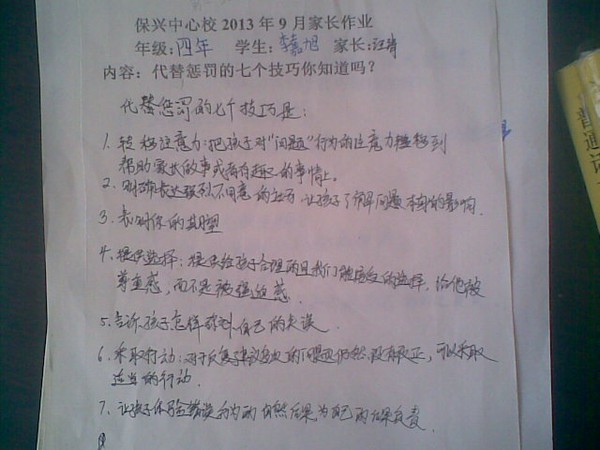 保兴中心校 2013 年 9 月家长作业
年级:四年 学生:李嘉旭 家长:汪
内容：代替惩罚的七个技巧你知道吗?
代替惩罚的七个技巧是：
1. 转移注意力:把孩子对“问题”行为的注意力转移到
帮助家长做事或有趣的事情上。
2. 明确表达强烈不同意的立场 让孩子了解问题本身的影响.
3. 表明你的期望
4. 提供选择：提供给孩子合理的且我们能接受的选择. 给他被
尊重感，而不是被强迫感.
5. 告诉孩子怎样弥补自己的失误.
6. 采取行动：对于反复建议的问题仍然没有改正，可以采取
适当的行动.
7. 让孩子体验错误行为的自然后果.为自己的后果负责.
普通话